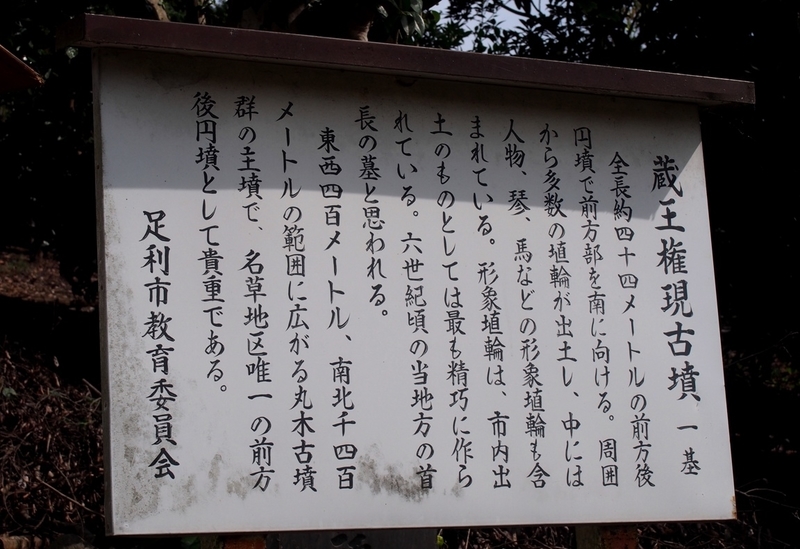 蔵王権現古墳 一基
全長約四十四メートルの前方後
円墳で前方部を南に向ける。周囲
から多数の埴輪が出土し、中には
人物、琴、馬などの形象埴輪も含
まれている。形象埴輪は、市内出
土のものとしては最も精巧に作ら
れている。六世紀頃の当地方の首
長の墓と思われる。
東西四百メートル、南北千四百
メートルの範囲に広がる丸木古墳
群の主墳で、名草地区唯一の前方
後円墳として貴重である。
足利市教育委員会